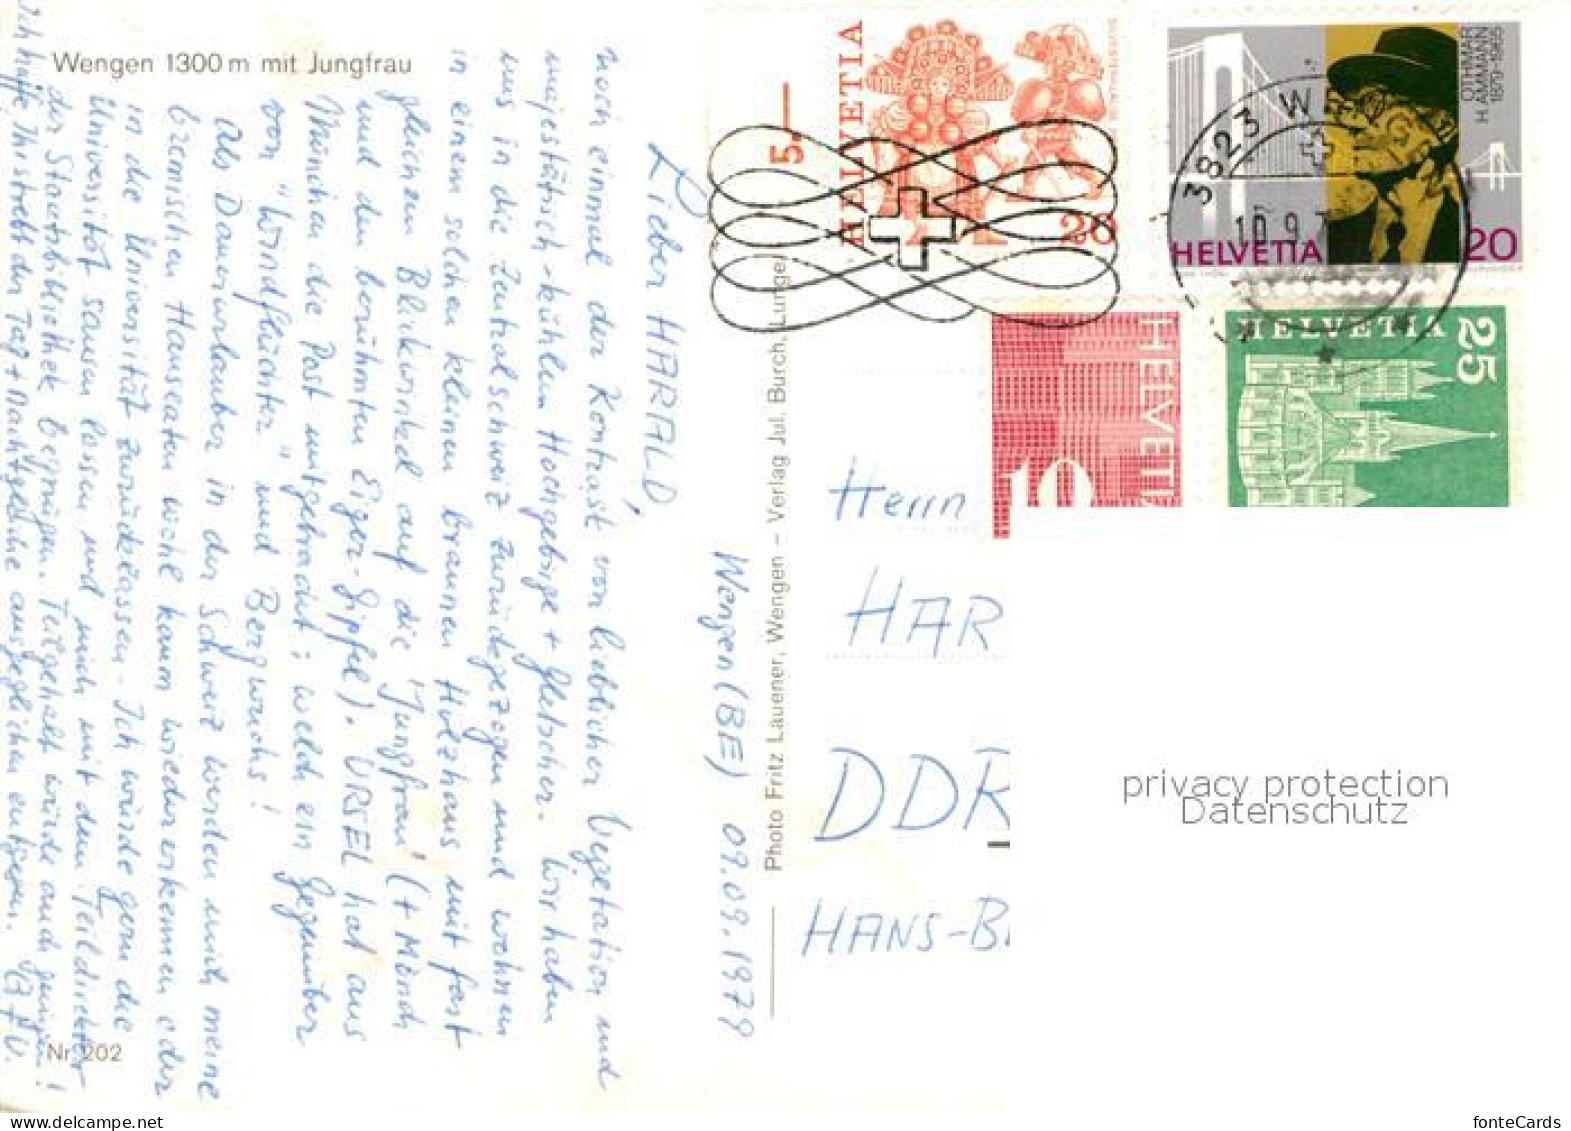 Wengen 1300 m mit Jungfrau
Lieber HARALD,
noch einmal der Kontrast von lieblicher Vegetation und
majestätisch-kühlem Hochgebirge + Gletscher. Wir haben
uns in die Zentralschweiz zurückgezogen und wohnen
in einem solchen kleinen braunen Holzhaus mit fast
gleichem Blickwinkel auf die "Jungfrau" (+ Mönch
und den berühmten Eiger-Gipfel). URSEL hat aus
München die Post mitgebracht; welch ein Gegenüber
von "Windflüchter" und Bergwuchs!
Als Dauerurlauber in der Schweiz werden mich meine
bremischen Hanseaten wohl kaum wiedererkennen oder
in die Universität zurücklassen. Ich würde gern die
Universität sausen lassen und mich mit dem Teildirektor
der Staatsbibliothek begnügen. Teilgehalt würde auch genügen!
Ich hoffe, Ihr strebt der Tag + Nachtgleiche ausgeglichen entgegen.
Nr. 202
Wengen (BE) 09.09.1979
Photo Fritz Lauener, Wengen – Verlag Jul. Burch, Lunge
5.—
HELVETIA
20
OTHMAR
H. AMMANN
1879-1965
HELVETIA
20
3823 W
10.9.7
HELVETIA
10
HELVETIA
25
Herrn
HAR
DDR
HANS-B
privacy protection
Datenschutz
fonteCards